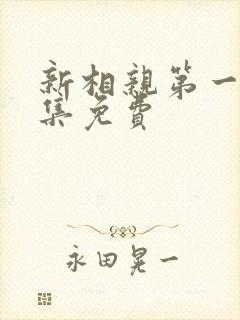 新相親第一
集免費
永田晃一